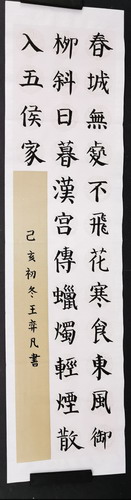 春城無處不飛花寒食東風御
柳斜日暮漢宮傳蠟燭輕煙散
入五侯家
己亥初冬王弈凡書